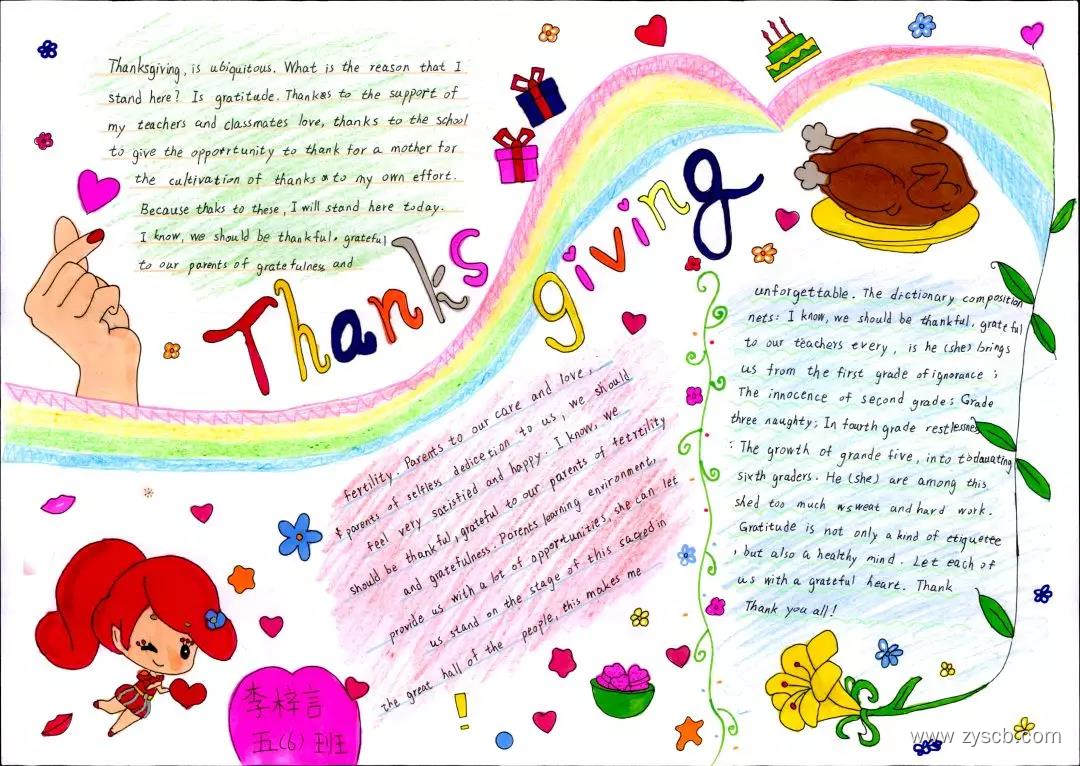 Thanksgiving, is ubiquitous. What is the reason that I
stand here? Is gratitude. Thankes to the support of
my teachers and classmates love, thanks to the school
to give the opportunity to thank for a mother for
the cultivation of thanks to my own effort.
Because thaks to these, I will stand here today.
I know, we should be thankful, grateful
to our parents of gratefulness and
Thanks
giving
fertility. Parents to our care and love,
parents of selfless dedicetion to us, we should
feel very satisfied and happy. I know, we
should be thankful, grateful to our parents of fetrtility
and gratefulness. Parents learning environment,
provide us with a lot of opportunities, she can let
us stand on the stage of this sacred in
the great hall of the people, this makes me
unforgettable. The dictionary composition
nets: I know, we should be thankful, grateful
to our teachers every, is he (she) brings
us from the first grade of ignorance;
The innocence of second grade: Grade
three naughty; In fourth grade restlessness
: The growth of grande five, into todauating
sixth graders. He (she) are among this
shed too much wsweat and hard work.
Gratitude is not only a kind of etiquetee
, but also a healthy mind. Let each of
us with a grateful heart. Thank
Thank you all!
李梓言
五(6)班
www.zyscb.com